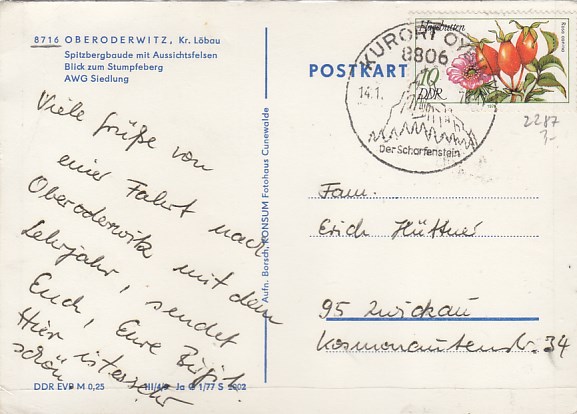 8716 OBERODERWITZ, Kr. Löbau
Spitzbergbaude mit Aussichtsfelsen
Blick zum Stumpfeberg
AWG Siedlung
Viele Grüße von
einer Fahrt nach
Oberoderwitz mit dem
Lehrjahr, sendet
Euch, Eure Birgit.
Hier ist es sehr
schön
DDR EVP M 0,25 III/4/9 Ja G 1/77 S 2002
Aufn. Borsch, KONSUM Fotohaus Cunewalde
POSTKARTE
KURORT OYBIN
8806
14.1.
Der Scharfenstein
Hagebutten
Rosa canina
10
DDR
2287
3-
Fam.
Erich Hüttner
95 Zwickau
Kosmonautenstr. 34